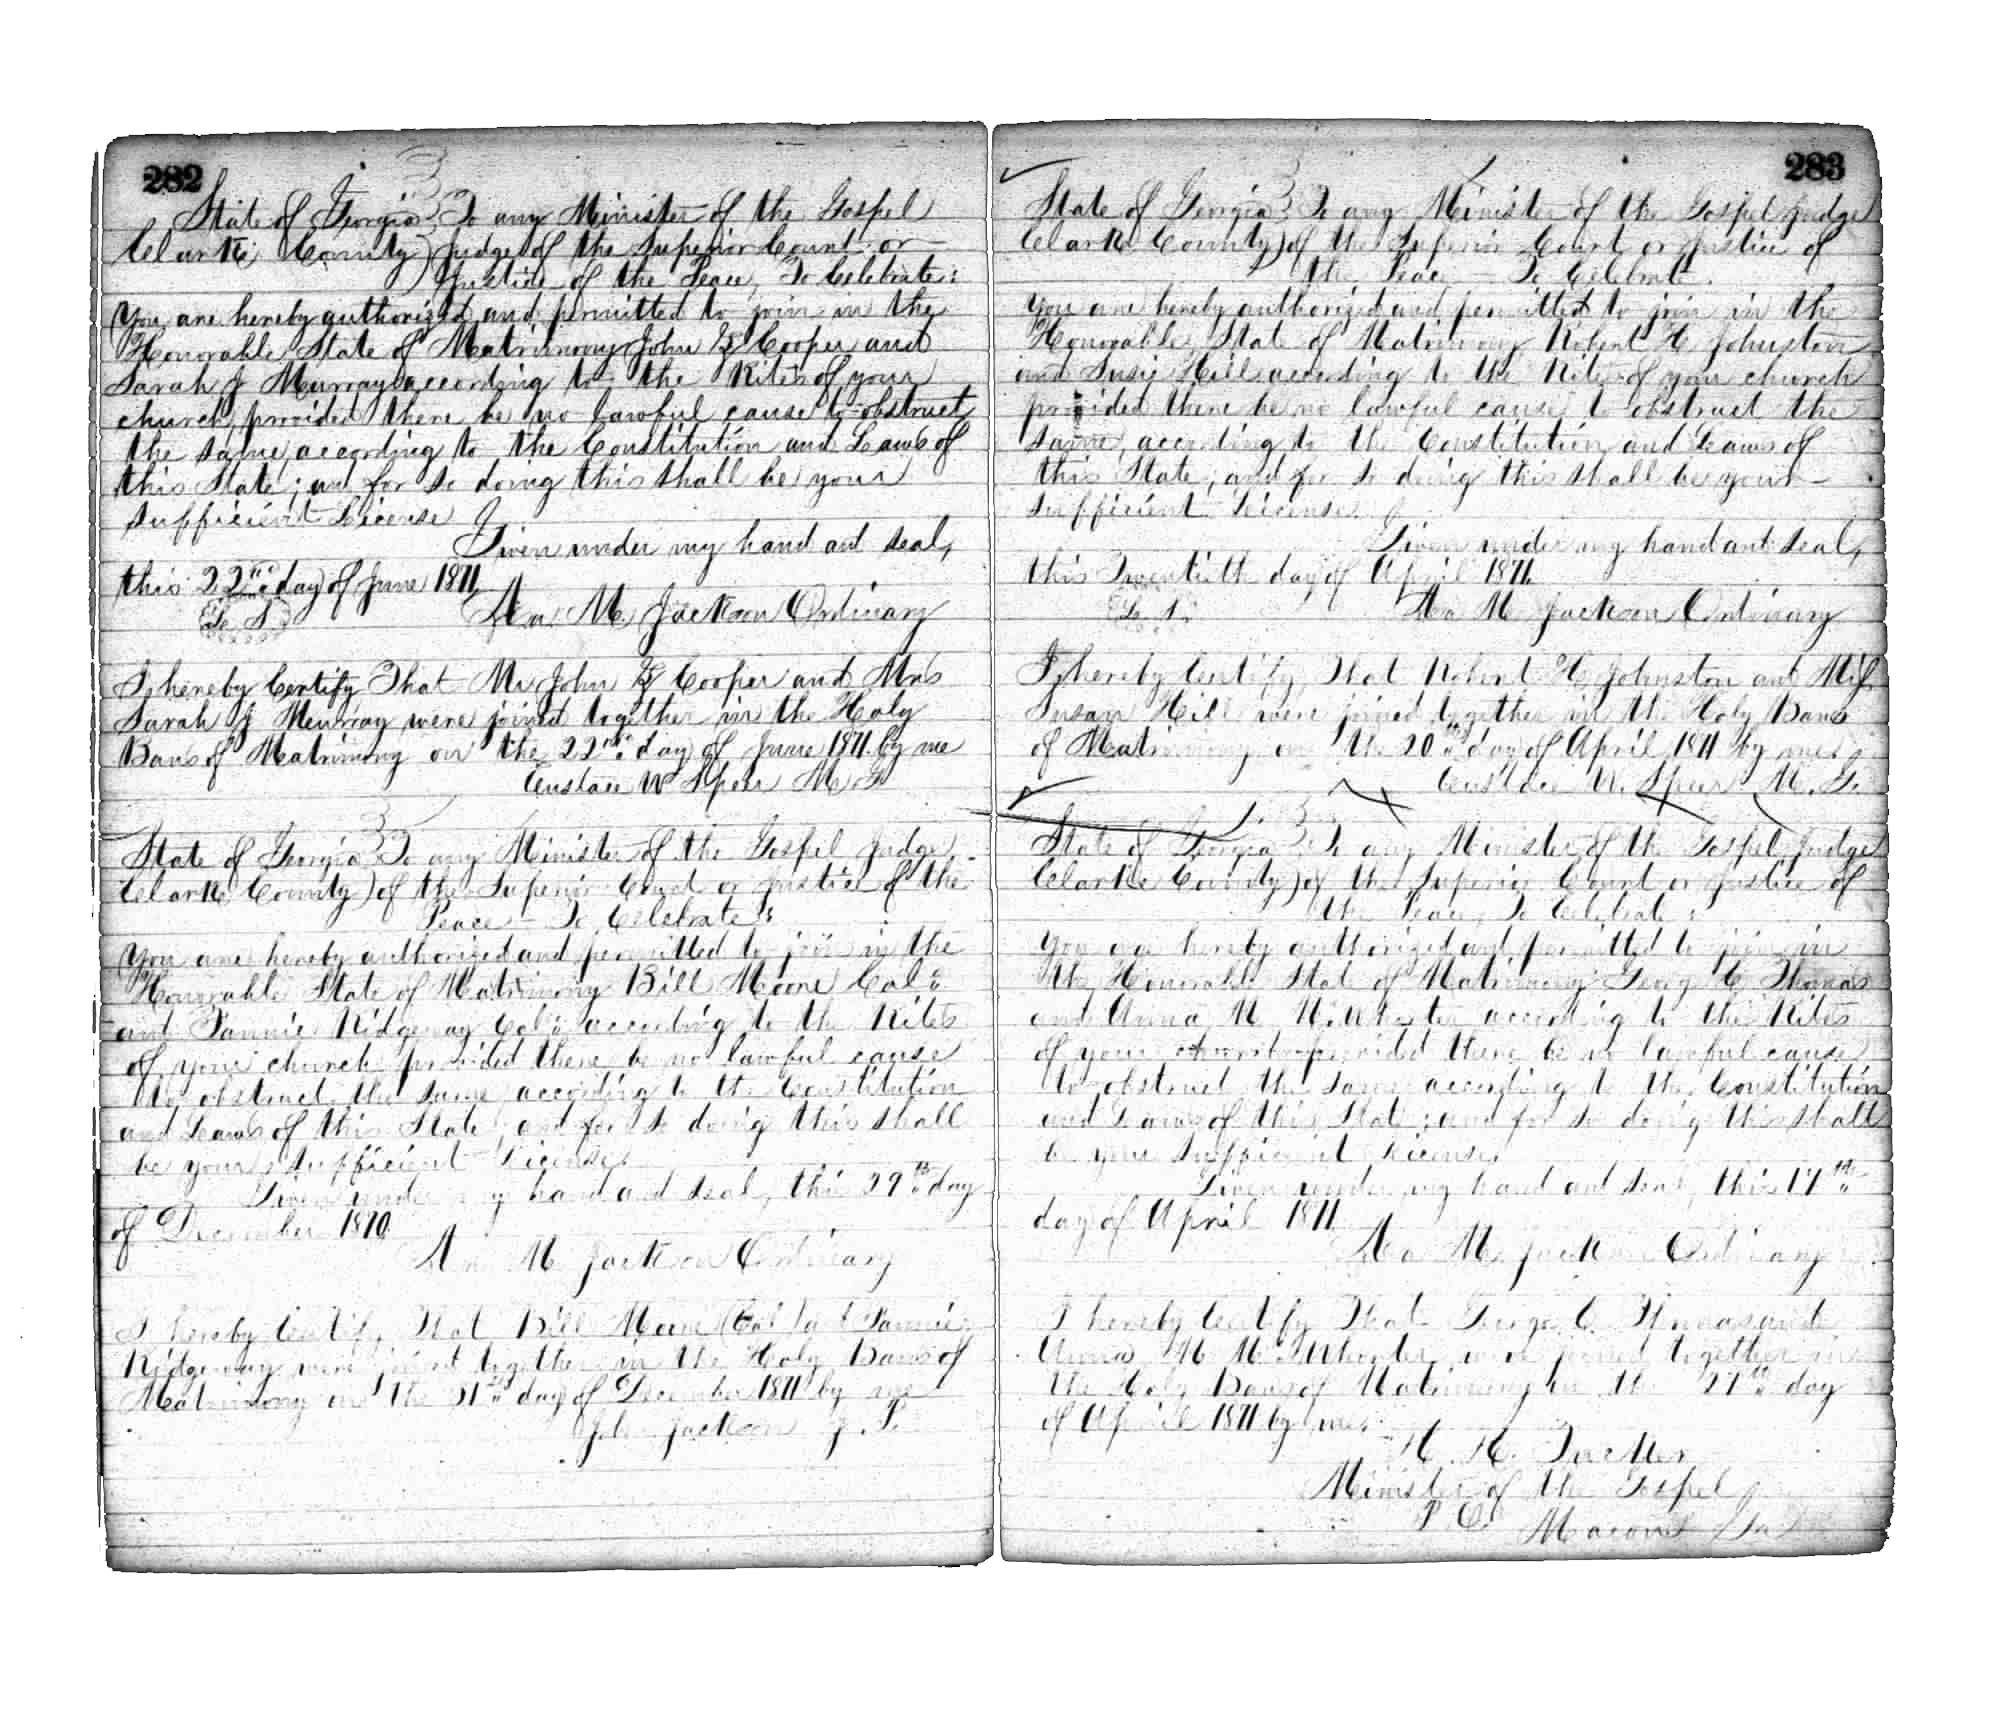 282
State of Georgia } To any Minister of the Gospel
Clarke County ) Judge of the Superior Court or
Justice of the Peace, To Celebrate:
You are hereby authorized and permitted to join in the
Honorable State of Matrimony John Cooper and
Sarah J Murray according to the Rites of your
church, provided there be no lawful cause to obstruct
the same, according to the Constitution and Laws of
this State; an for so doing this shall be your
sufficient License
Given under my hand and seal,
this 22nd day of June 1871
L. S. Asa M. Jackson Ordinary
I, hereby Certify That Mr John Cooper and Mrs
Sarah J Murray were joined together in the Holy
Bans of Matrimony on the 22nd day of June 1871 by me
Eustace W Speer M G
State of Georgia } To any Minister of the Gospel Judge
Clarke County ) of the Superior Court or Justice of the
Peace - To Celebrate:
You are hereby authorized and permitted to join in the
Honorable State of Matrimony Bill Moore Col:
and Fannie Ridgeway Col: according to the Rites
of your church provided there be no lawful cause
to obstruct the same according to the Constitution
and Laws of this State; and for so doing this shall
be your sufficient License.
Given under my hand and seal, this 29th day
of December 1870
Asa M Jackson Ordinary
I hereby Certify, That Bill Moore (Col) and Fannie
Ridgeway were joined together in the Holy Bans of
Matrimony on the 31st day of December 1871 by me
Jackson J. P.
283
State of Georgia } To any Minister of the Gospel Judge
Clarke County ) of the Superior Court or Justice of
the Peace - To Celebrate.
You are hereby authorized and permitted to join in the
Honorable State of Matrimony Robert H. Johnston
and Susie Hill according to the Rites of your church
provided there be no lawful cause to obstruct the
same, according to the Constitution and Laws of
this State; and for so doing this shall be your
sufficient License.
Given under my hand and seal,
this Twentieth day of April 1871
L. S. Asa M Jackson Ordinary
I, hereby Certify That Robert H Johnston and Miss
Susan Hill were joined together in the Holy Bans
of Matrimony on the 20th day of April 1871 by me
Eustace W. Speer M. G.
State of Georgia } To any Minister of the Gospel Judge
Clarke County ) of the Superior Court or Justice of
the Peace, To Celebrate:
You are hereby authorized and permitted to join in
the Honorable State of Matrimony George C. Thomas
and Anna M. McWhorter according to the Rites
of your church provided there be no lawful cause
to obstruct the same according to the Constitution
and Laws of this State; and for so doing this shall
be your sufficient License.
Given under my hand and seal, this 17th
day of April 1871
Asa M. Jackson Ordinary
I hereby Certify That George C. Thomas and
Anna M McWhorter were joined together in
the Holy Bans of Matrimony on the 27th day
of April 1871 by me.
H. H. Tucker
Minister of the Gospel
P. O. Macon Ga